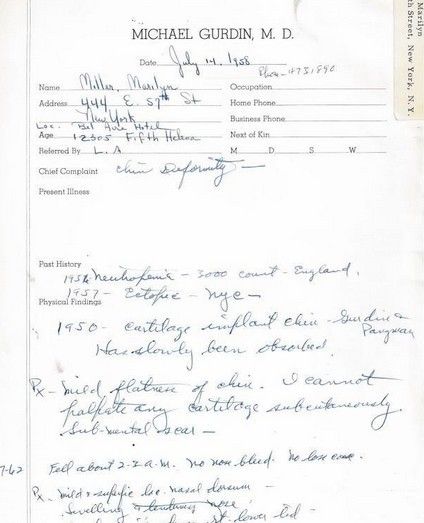 Marilyn
th Street, New York, N. Y.
MICHAEL GURDIN, M. D.
Date July 14, 1958
Phone - 4731890
Name Miller, Marilyn Occupation
Address 444 E. 57th St Home Phone
New York Business Phone
Loc. Bel Aire Hotel
Age 12305 Fifth Helena Next of Kin
Referred By L. A. M D S W
Chief Complaint Chin deformity -
Present Illness
Past History
1956 Neutropenia - 3000 count - England.
1957 - Ectopic - nyc -
Physical Findings
1950 - cartilage implant chin - Gurdin &
Pangman
Has slowly been absorbed.
Px - mild flatness of chin. I cannot
palpate any cartilage subcutaneously.
Sub-mental scar -
7-62 Fell about 2-3 a.m. No nose bleed. No loss
Px - mild nasal dorsum -
Swelling & tenderness nose
lower lid -